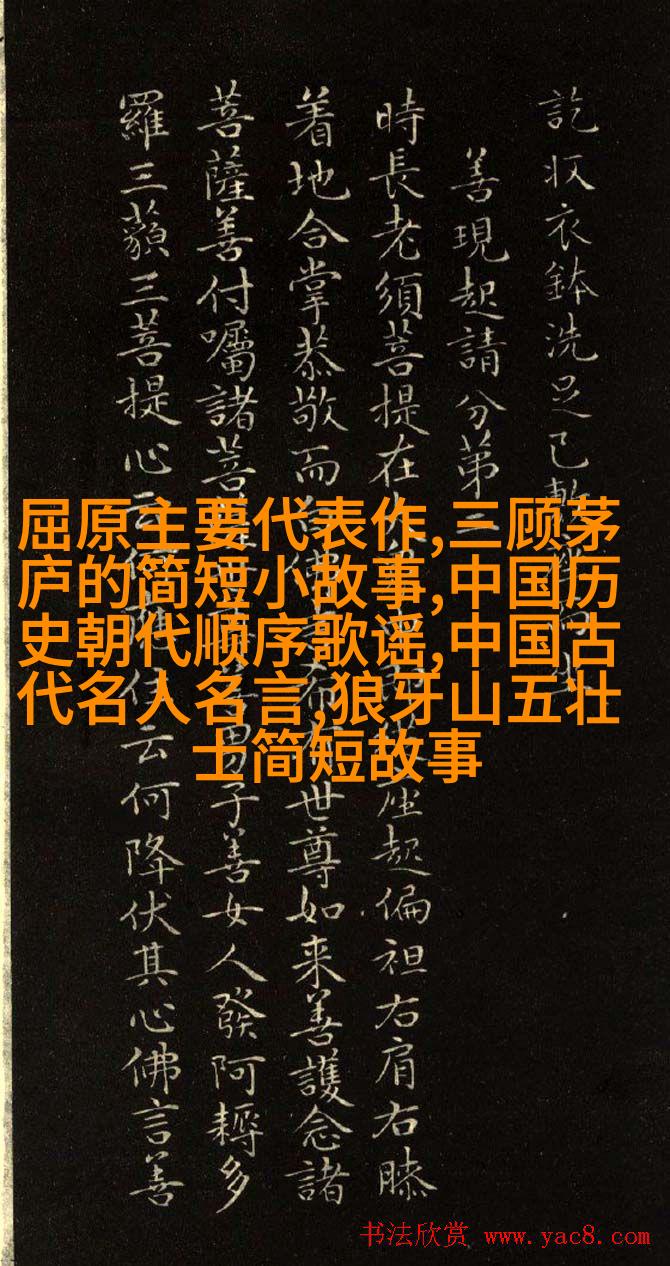 訖收衣鉢洗足已
善現起請分第二
時長老須菩提在座起偏袒右肩右膝
着地合掌恭敬而佛有世尊如来善護念諸
菩薩善付囑諸菩男子善女人發阿耨多
羅三藐三菩提心云住云何降伏其心佛言善
屈原主要代表作,三顾茅
庐的简短小故事,中国历
史朝代顺序歌谣,中国古
代名人名言,狼牙山五壮
士简短故事
书法欣赏 www.yac8.com